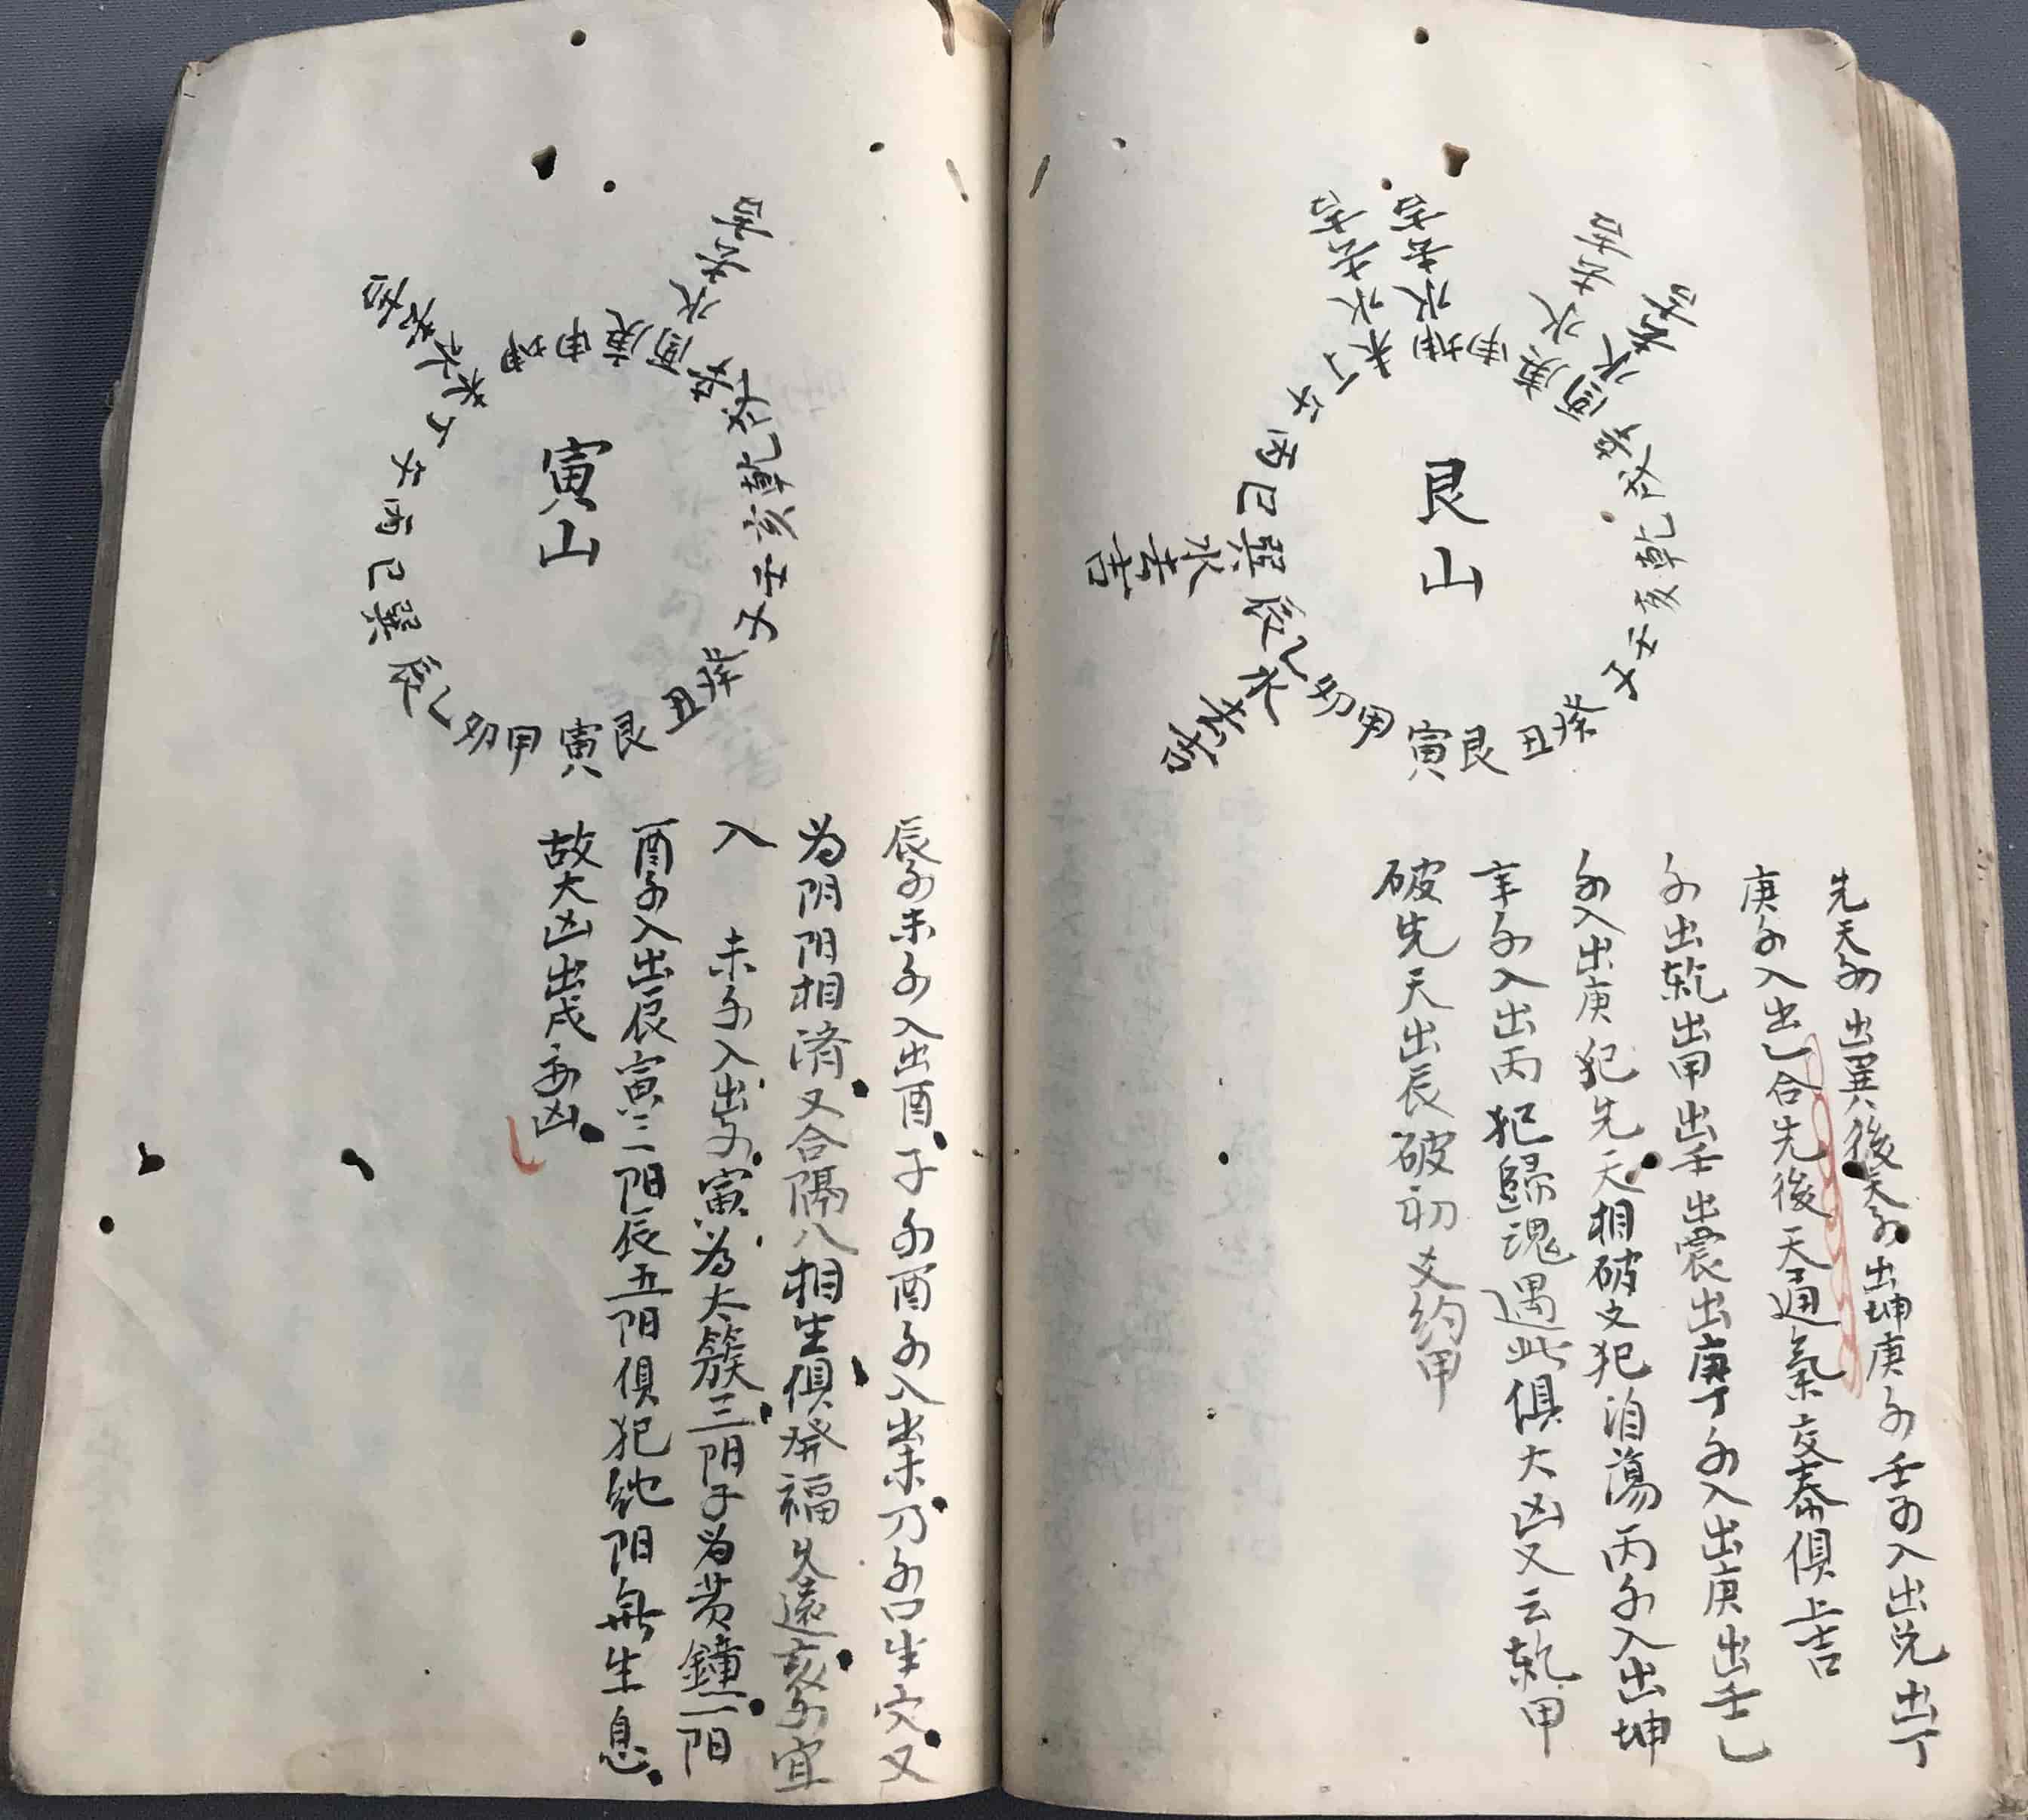 艮山
寅艮丑癸子壬亥乾戌辛酉庚申坤未丁午丙巳巽辰乙卯甲
水若吉
水若吉
水若吉
水若吉
水若吉
水若吉
先天水出巽後天水出坤庚水壬水入出兌出丁
庚水入出乙合先後天通氣交泰俱上吉
水出乾出甲出壬出震出庚丁水入出庚出壬乙
水入出庚犯先天相破又犯消蕩丙水入出坤
辛水入出丙犯歸魂遇此俱大凶又云乾甲
破先天出辰破初爻約甲
寅山
寅艮丑癸子壬亥乾戌辛酉庚申坤未丁午丙巳巽辰乙卯甲
水若吉
水若吉
辰水未水入出酉子水酉水入出未乃水口生穴又
为阴阳相濟又合隔八相生俱發福久遠亥水宜
入 未水入出子寅为太簇三阳子为黄鐘一阳
酉水入出辰寅三阳辰五阳俱犯純阳無生息
故大凶出戌亦凶